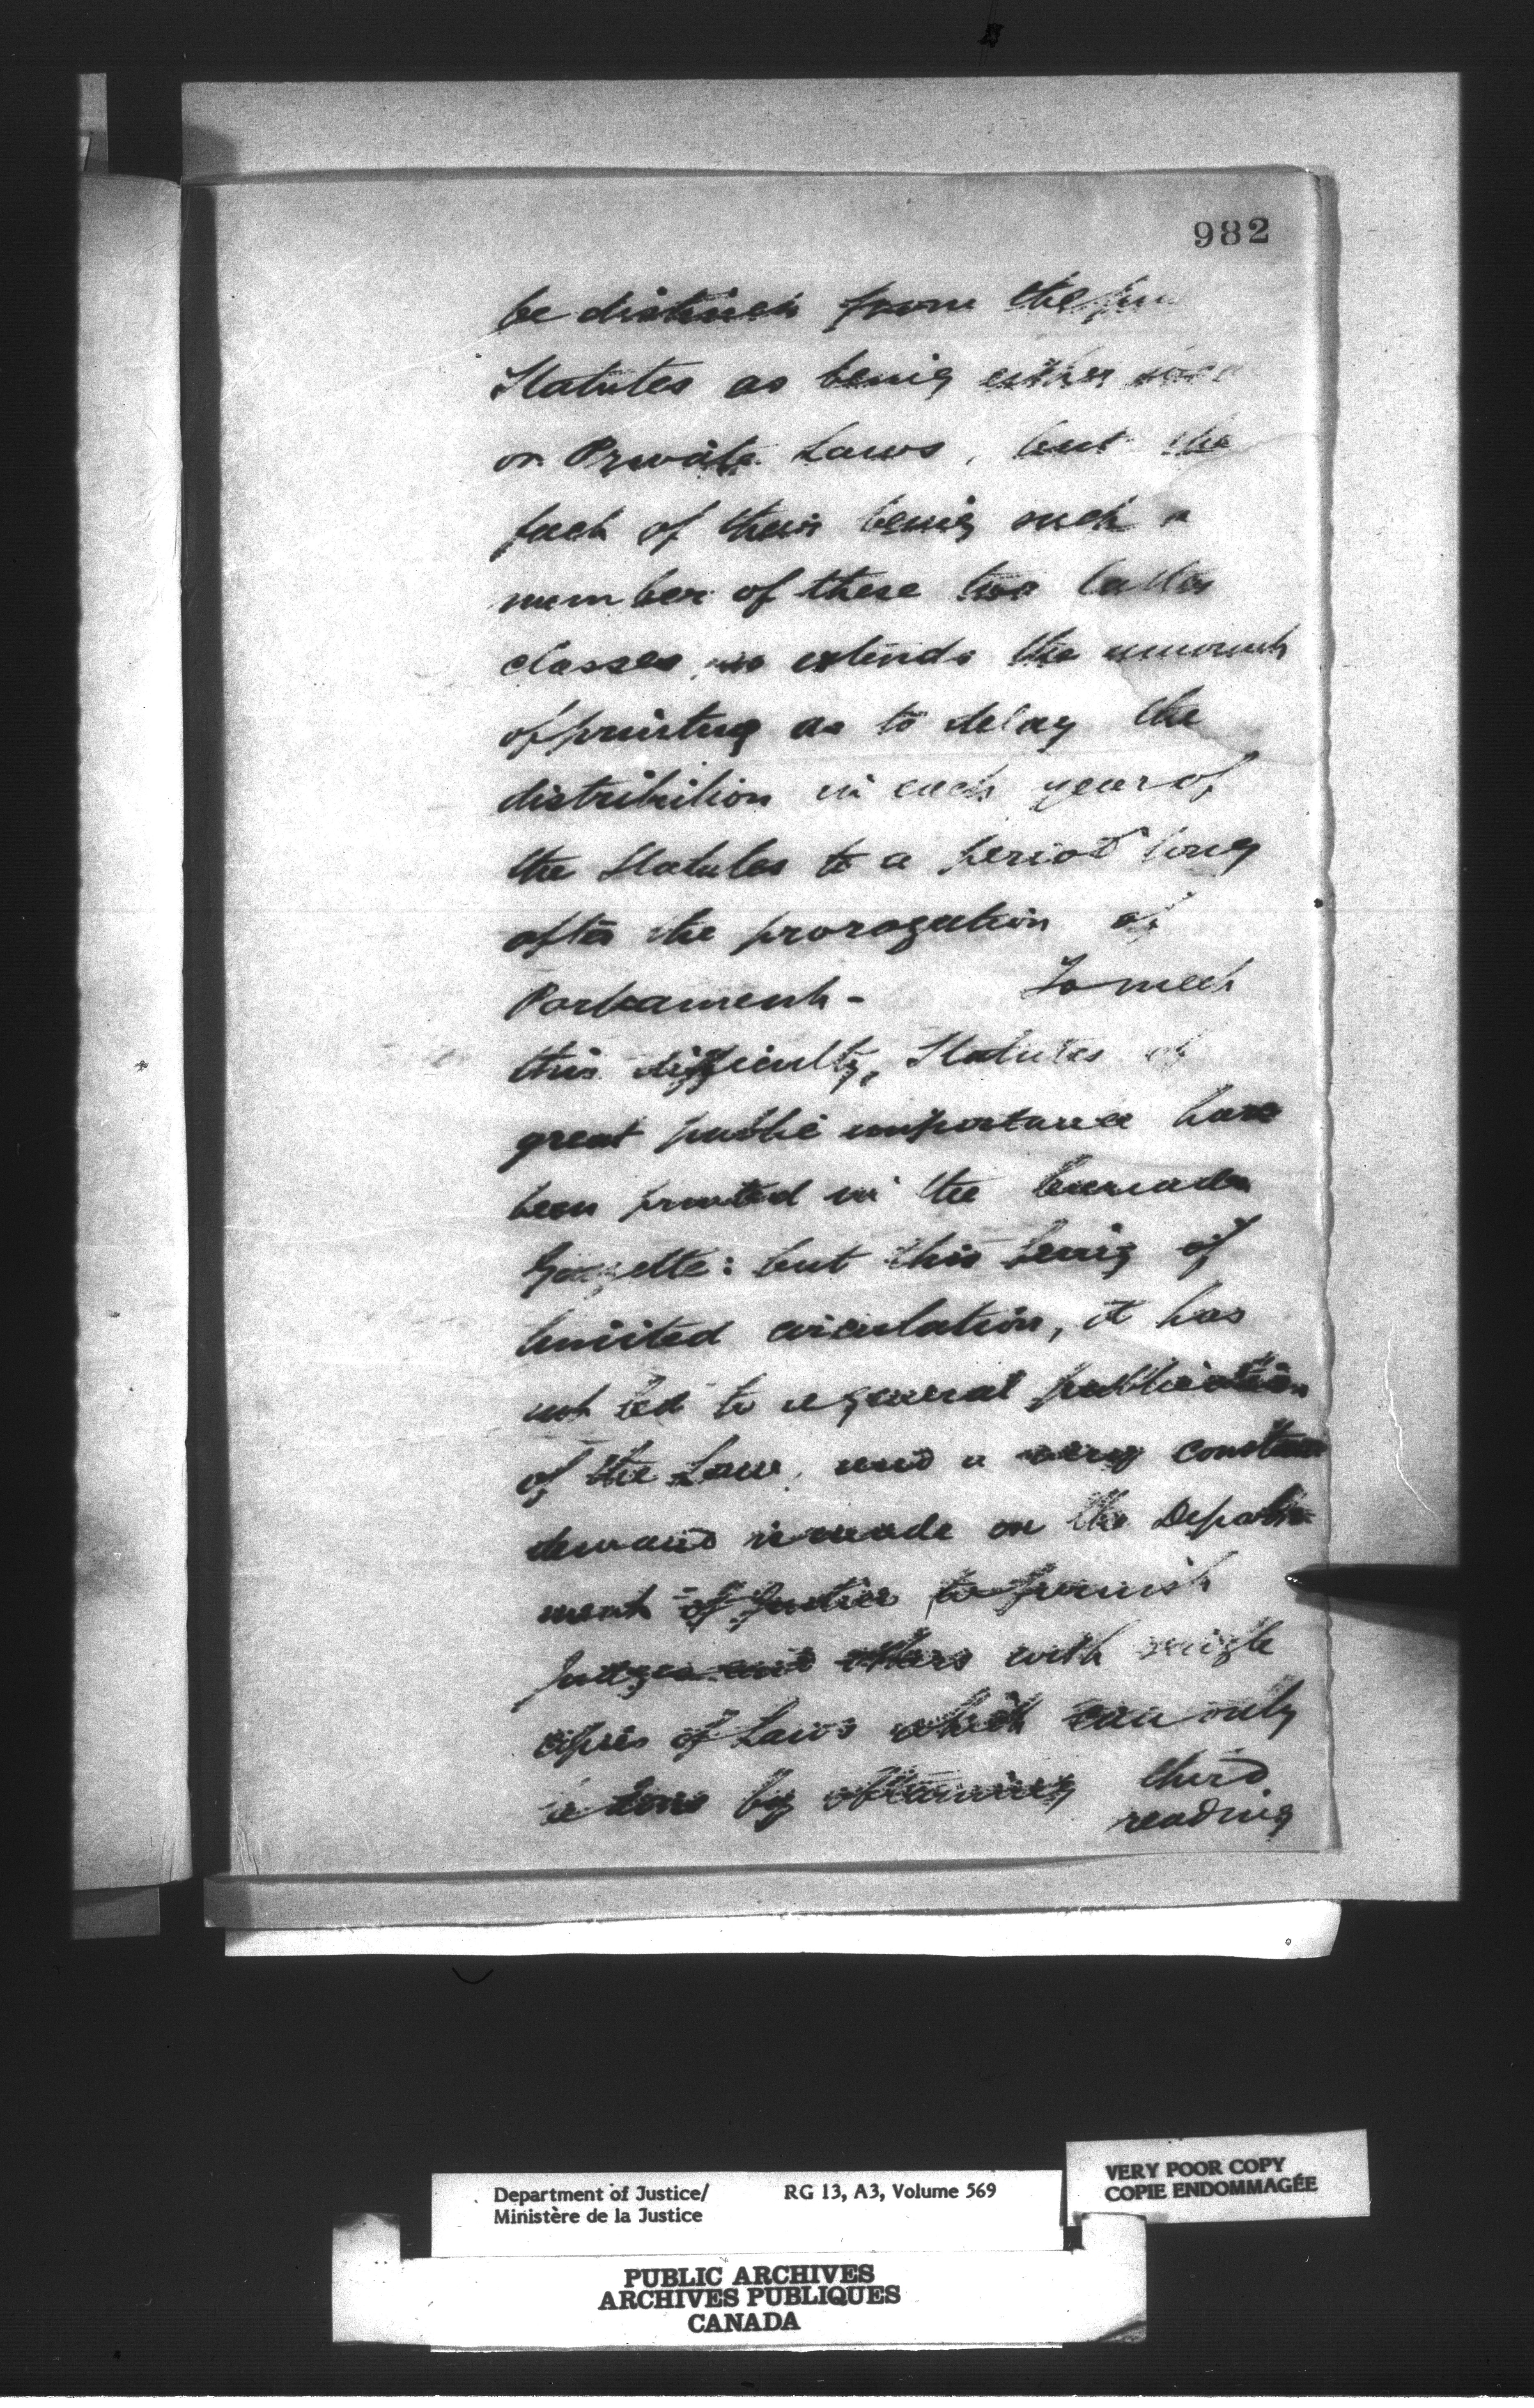 982
be distinct from the
Statutes as being either
or Private Laws, but the
fact of their being such a
number of these two latter
classes, so extends the amount
of printing as to delay the
distribution in each year of
the Statutes to a period long
after the prorogation of
Parliament - To meet
this difficulty, Statutes of
great public importance have
been printed in the Canada
Gazette: but this being of
limited circulation, it has
not led to a general publication
of the Law, and a very constant
demand is made on the Depart-
ment of Justice to furnish
Judges and others with single
copies of Laws which can only
be done by obtaining third
reading
Department of Justice/ RG 13, A3, Volume 569
Ministère de la Justice
VERY POOR COPY
COPIE ENDOMMAGÉE
PUBLIC ARCHIVES
ARCHIVES PUBLIQUES
CANADA